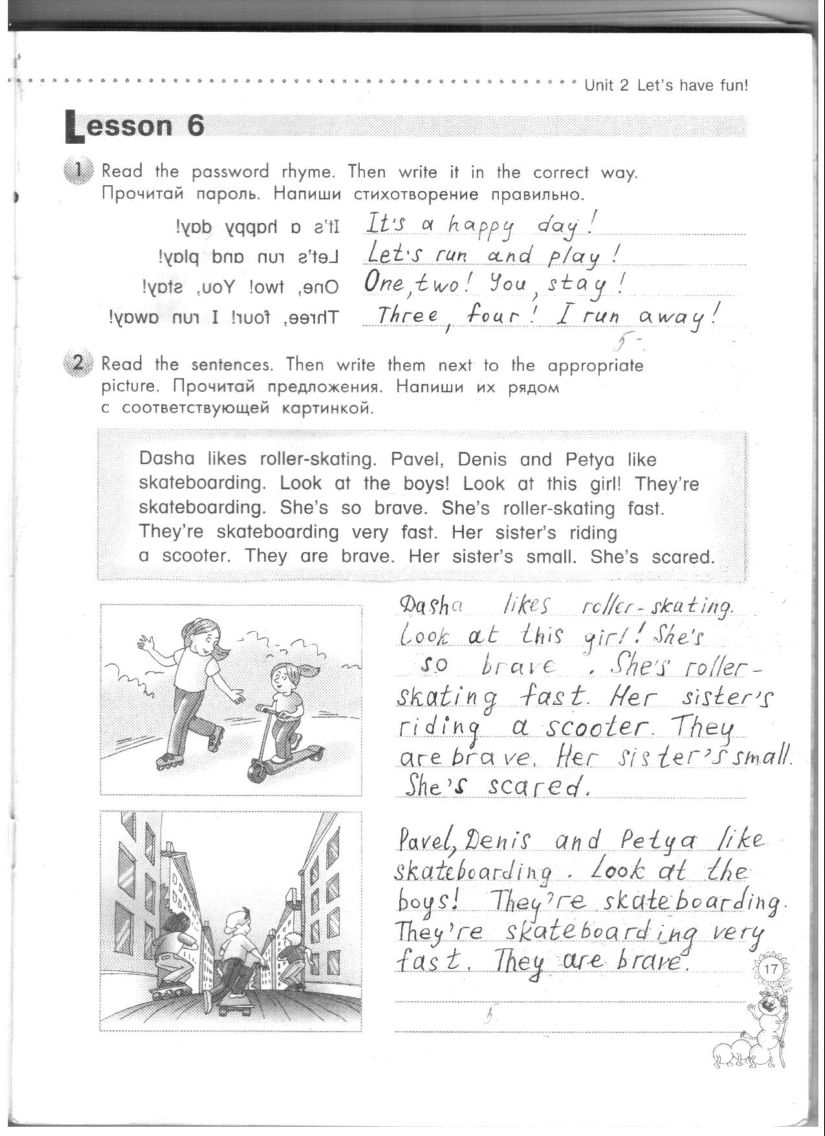 Unit 2 Let's have fun!
Lesson 6
1 Read the password rhyme. Then write it in the correct way.
Прочитай пароль. Напиши стихотворение правильно.
It's a happy day! It's a happy day!
Let's run and play! Let's run and play!
One, two! You, stay! One, two! You, stay!
Three, four! I run away! Three, four! I run away!
5-
2 Read the sentences. Then write them next to the appropriate
picture. Прочитай предложения. Напиши их рядом
с соответствующей картинкой.
Dasha likes roller-skating. Pavel, Denis and Petya like
skateboarding. Look at the boys! Look at this girl! They're
skateboarding. She's so brave. She's roller-skating fast.
They're skateboarding very fast. Her sister's riding
a scooter. They are brave. Her sister's small. She's scared.
Dasha likes roller-skating.
Look at this girl! She's
so brave . She's roller-
skating fast. Her sister's
riding a scooter. They
are brave. Her sister's small.
She's scared.
Pavel, Denis and Petya like
skateboarding . Look at the
boys! They're skateboarding.
They're skateboarding very
fast. They are brave.
17
5